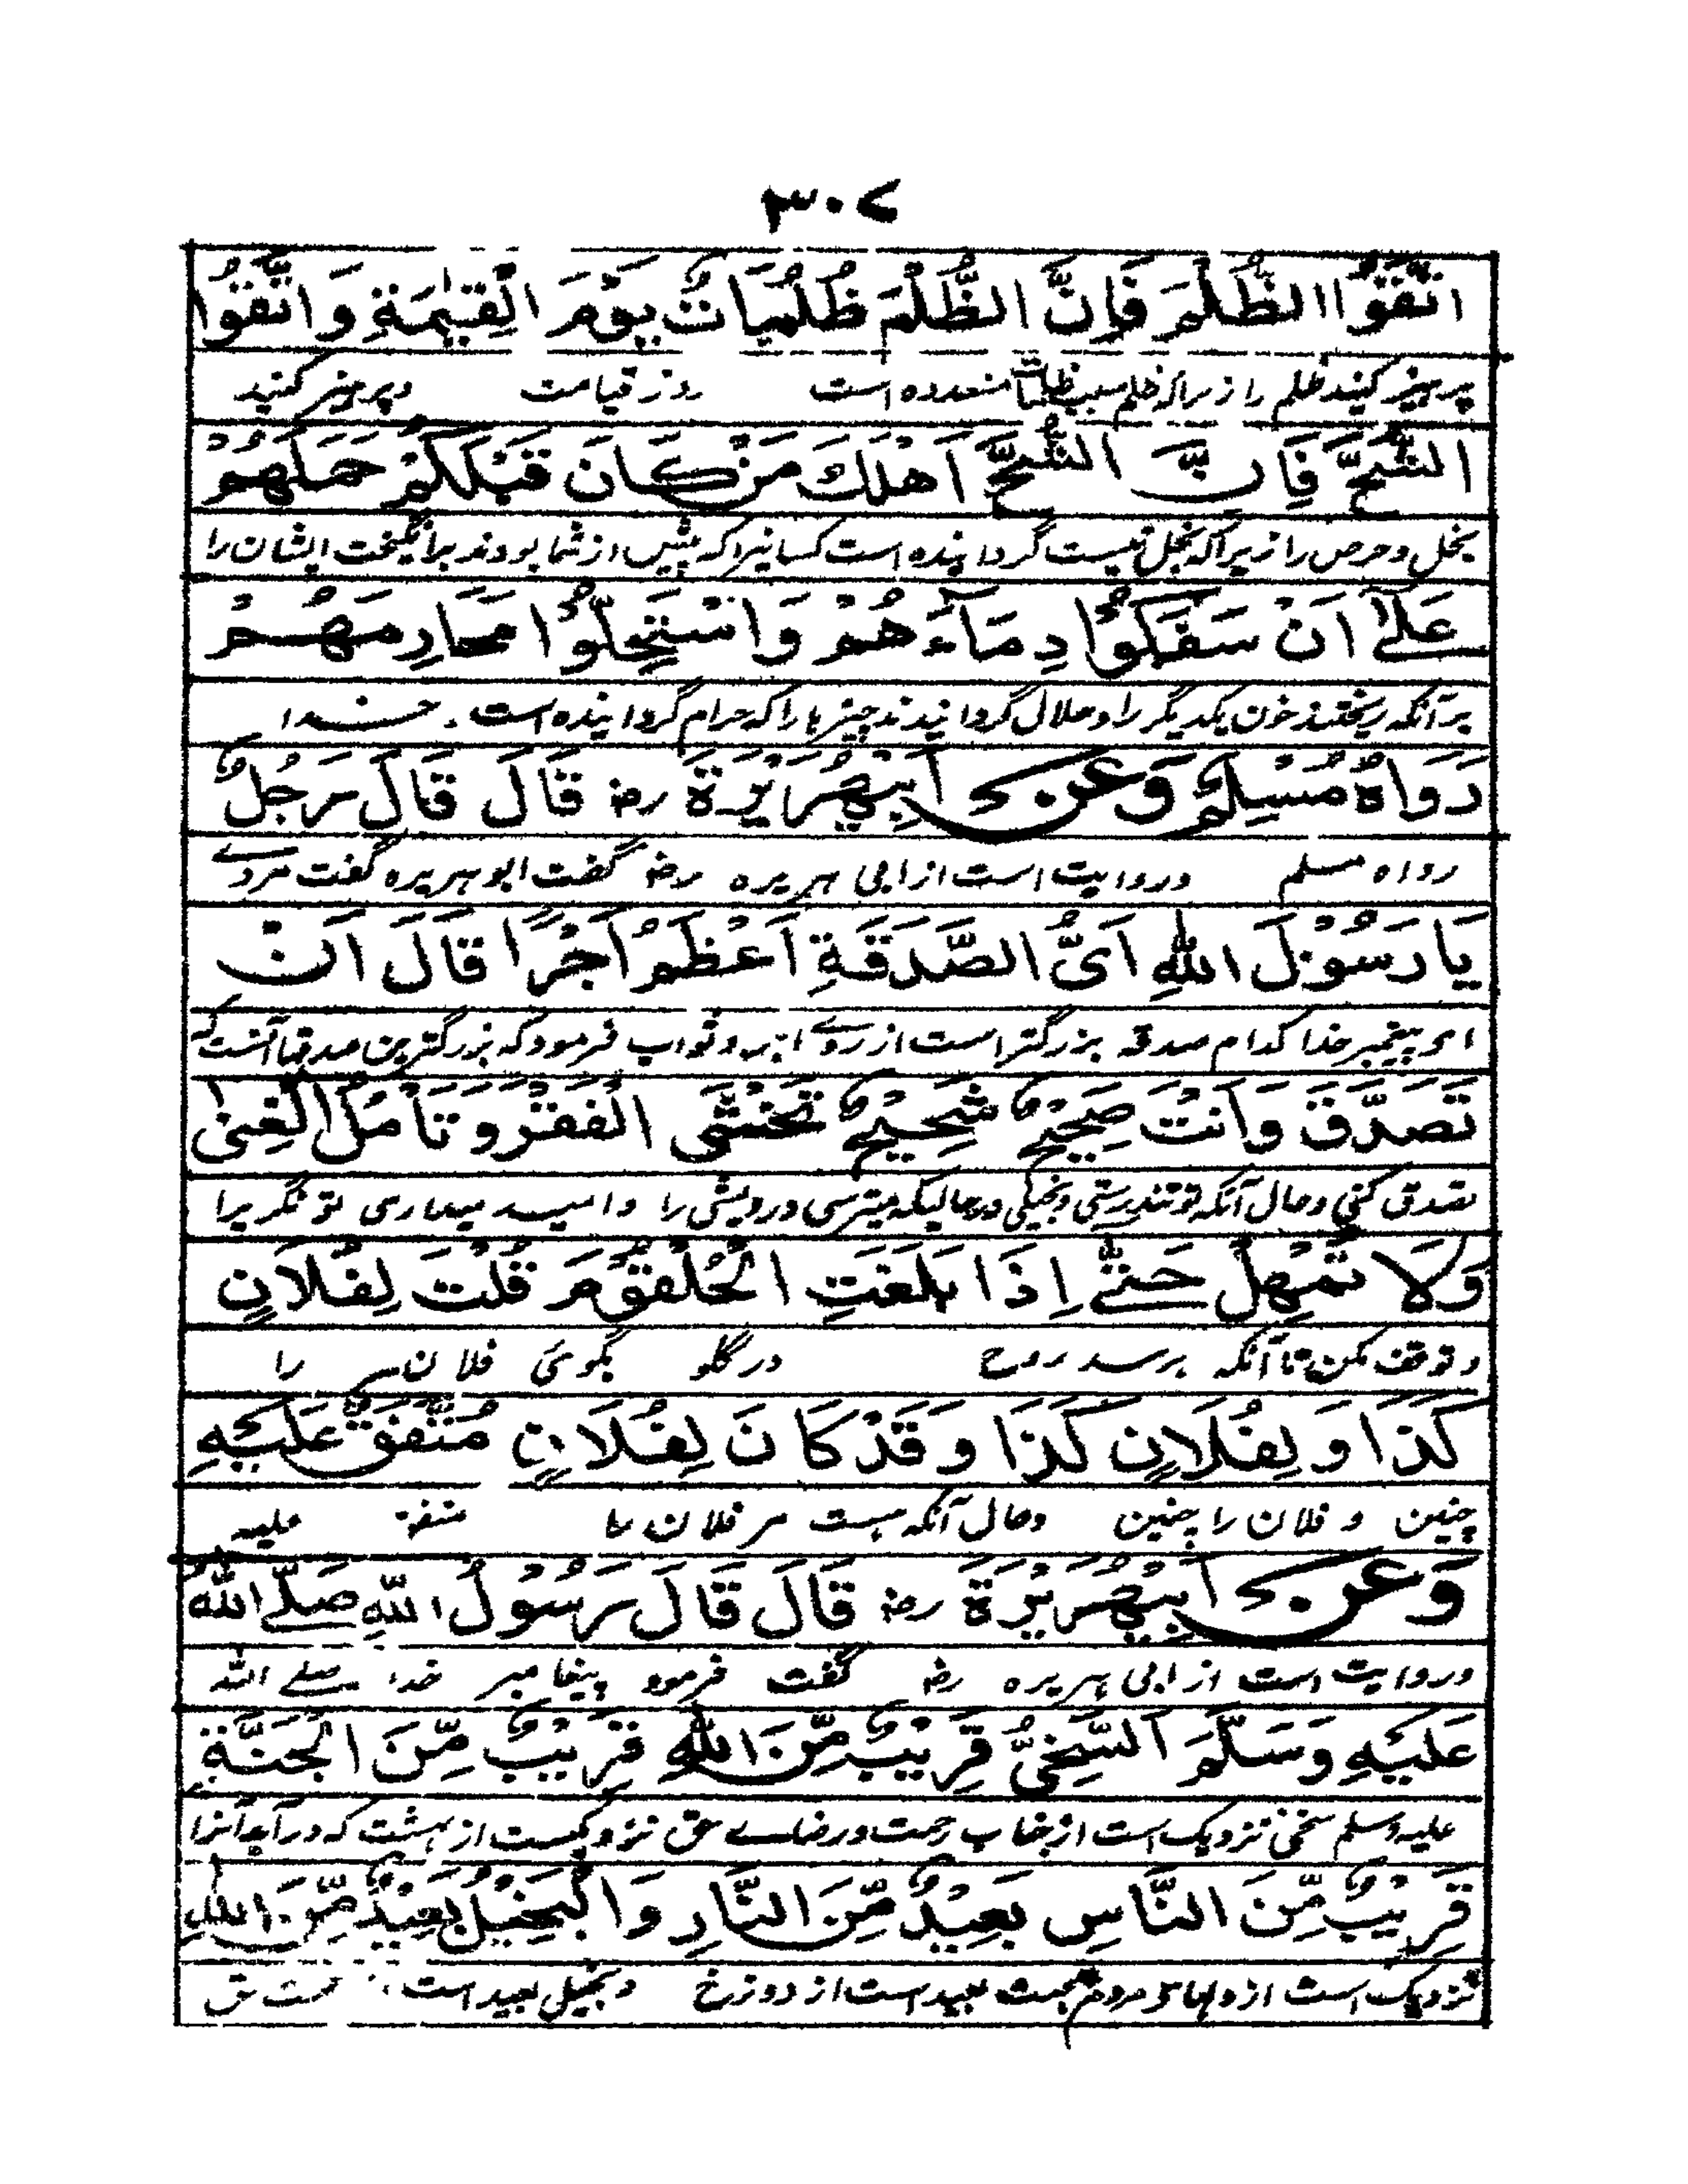 ۳۰۷
اتَّقُوا الظُّلْمَ فَإِنَّ الظُّلْمَ ظُلُمَاتٌ يَوْمَ الْقِيٰمَةِ وَاتَّقُوا
پرہیز کنید ظلم را زیراکہ ظلم سبب ظلمات متعددہ است روز قیامت وپرہیز کنید
الشُّحَّ فَإِنَّ الشُّحَّ اَهْلَكَ مَنْ كَانَ قَبْلَكُمْ حَمَلَهُمْ
بخل وحرص را زیراکہ بخل نیست گردانیدہ است کسانیرا کہ پیش از شما بودند برانگیخت ایشان را
عَلٰٓى اَنْ سَفَكُوْا دِمَآءَهُمْ وَاسْتَحَلُّوْا مَحَارِمَهُمْ
برآنکہ ریختند خون یکدیگر را وحلال گردانیدند چیزہا راکہ حرام گردانیدہ است۔ خدا
رَوَاهُ مُسْلِمٌ وَعَنْ اَبِيْهُرَيْرَةَ رض قَالَ قَالَ رَجُلٌ
رواہ مسلم وروایت است از ابی ہریرہ رض گفت ابوہریرہ گفت مردے
يَا رَسُوْلَ اللّٰهِ اَىُّ الصَّدَقَةِ اَعْظَمُ اَجْرًا قَالَ اَنْ
ای پیغمبر خدا کدام صدقہ بزرگتر است از روے اجر وثواب فرمود کہ بزرگترین صدقہا آنست کہ
تَصَدَّقَ وَاَنْتَ صَحِيْحٌ شَحِيْحٌ تَخْشَى الْفَقْرَ وَتَأْمُلُ الْغِنٰى
تصدق کنی وحال آنکہ تو تندرستی وبخیلی درحالیکہ میترسی درویشی را وامید میداری توانگری را
وَلَا تُمْهِلْ حَتّٰى اِذَا بَلَغَتِ الْحُلْقُوْمَ قُلْتَ لِفُلَانٍ
وتوقف مکن تا آنکہ برسد روح در گلو بگوئی فلان را
كَذَا وَ لِفُلَانٍ كَذَا وَ قَدْ كَانَ لِفُلَانٍ مُتَّفَقٌ عَلَيْهِ
چنین و فلان را چنین وحال آنکہ ہست مر فلان را متفق علیہ
وَعَنْ اَبِيْهُرَيْرَةَ رض قَالَ قَالَ رَسُوْلُ اللّٰهِ صَلَّى اللّٰهُ
وروایت است از ابی ہریرہ رض گفت فرمود پیغامبر خدا صلے اللہ
عَلَيْهِ وَسَلَّمَ السَّخِىُّ قَرِيْبٌ مِّنَ اللّٰهِ قَرِيْبٌ مِّنَ الْجَنَّةِ
علیہ وسلم سخی نزدیک است از جناب رحمت ورضاے حق نزدیکست از بہشت کہ درآید آنرا
قَرِيْبٌ مِّنَ النَّاسِ بَعِيْدٌ مِّنَ النَّارِ وَالْبَخِيْلُ بَعِيْدٌ مِّنَ اللّٰهِ
نزدیک است از دلہائے مردم بعید است از دوزخ وبخیل بعید است